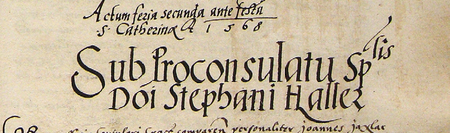 Actum feria secunda ante festũ
S Catherinæ A 1568
Sub Proconsulatu Splis
Dói Stephani Haller
comparen personaliter Joannes